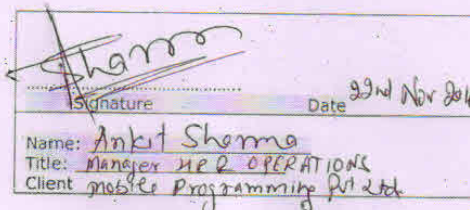 Sharma
Signature Date 22nd Nov
Name: Ankit Sharma
Title: Manager HR & OPERATIONS
Client Mobile Programming Pvt Ltd